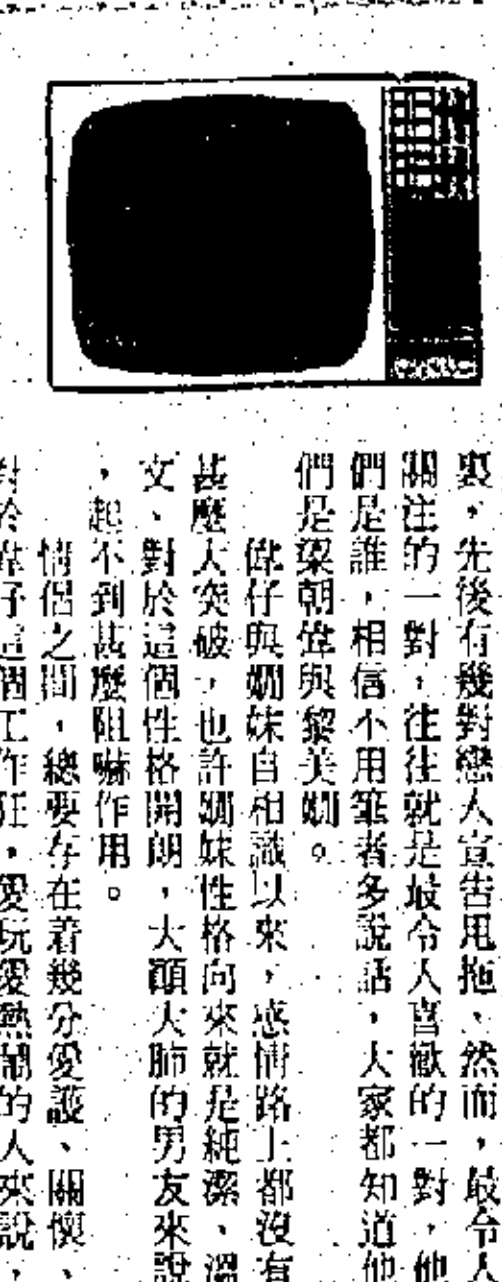 裏，先後有幾對戀人宣告甩拖、然而，最令人
關注的一對，往往就是最令人喜歡的一對，他
們是誰，相信不用筆者多說話，大家都知道他
們是梁朝偉與黎美嫻。
偉仔與嫻妹自相識以來，感情路上都沒有
甚麼大突破，也許嫻妹性格向來就是純潔、溫
文、對於這個性格開朗，大顛大肺的男友來說
，起不到甚麼阻嚇作用。
情侶之間，總要存在着幾分愛護、關懷、
對於偉仔這個工作狂，愛玩愛熱鬧的人來說，